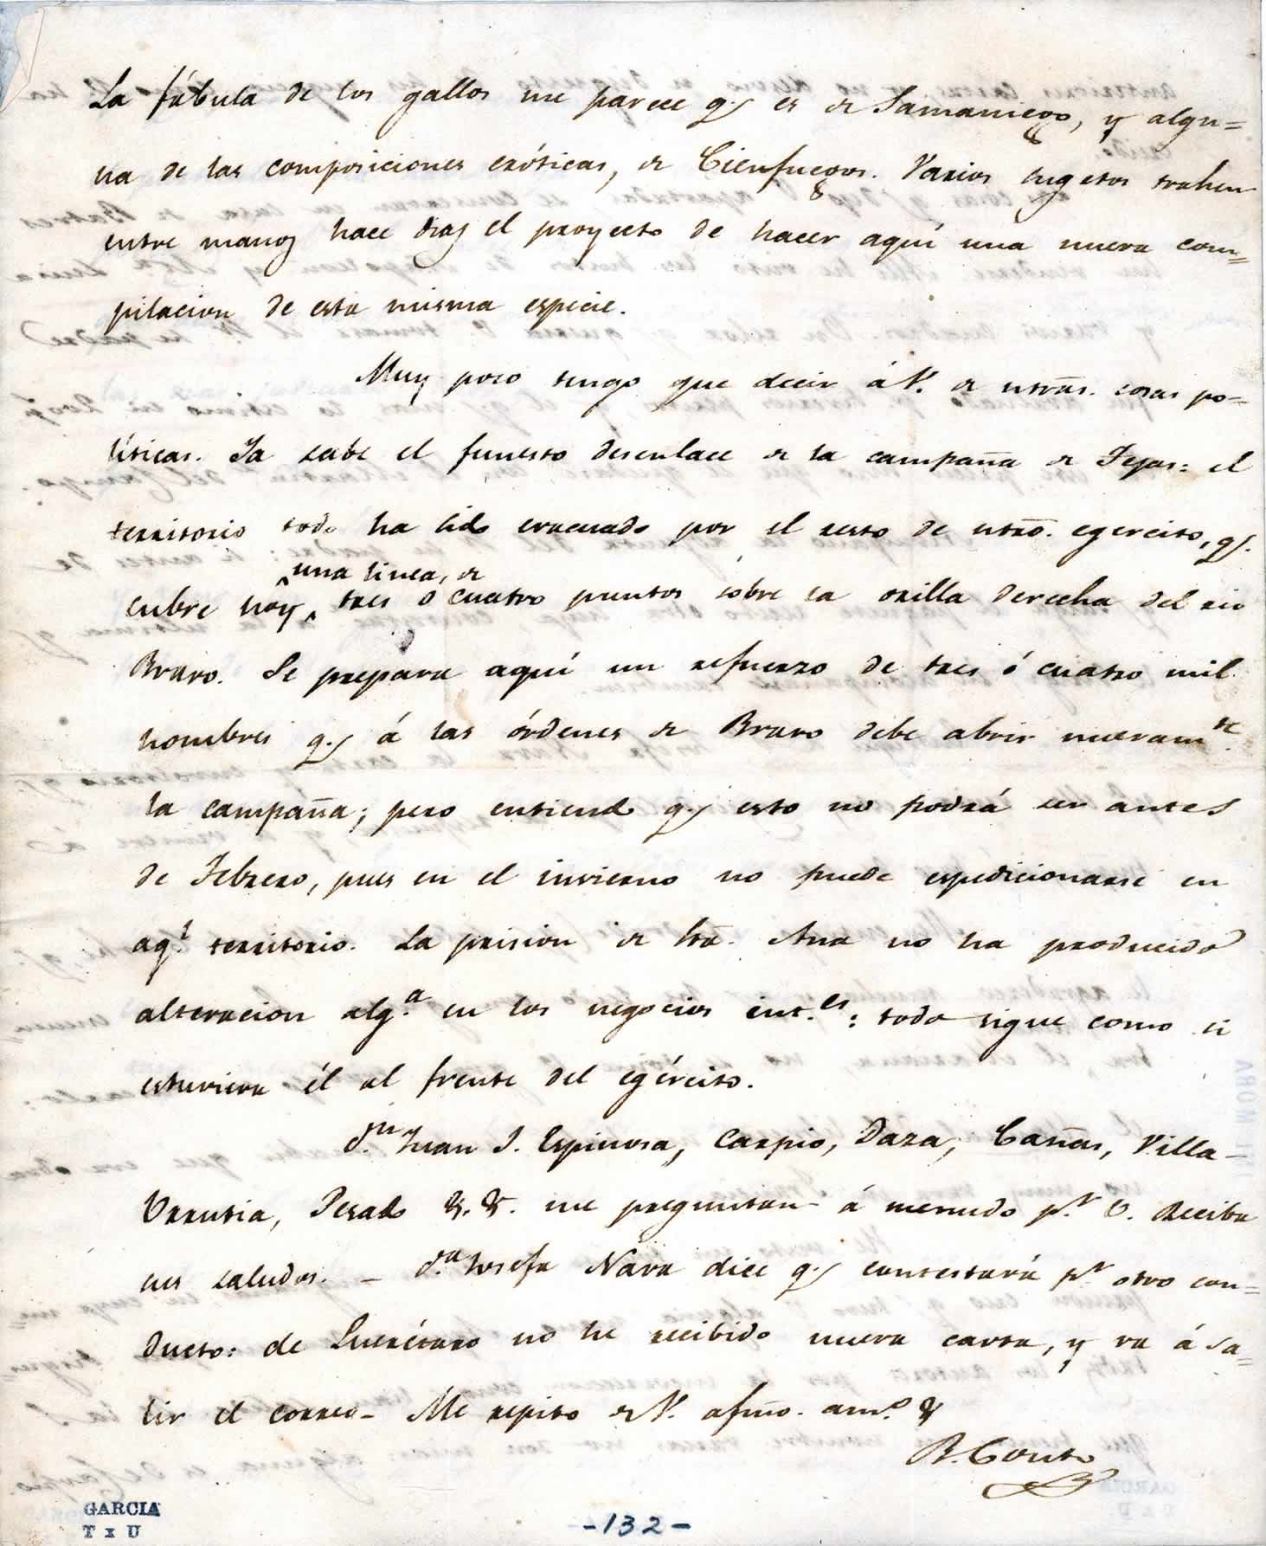 La fábula de los gallos me parece q.e es de Samaniego, y algu=
na de las composiciones exóticas, de Cienfuegos. Varios sugetos trahen
entre manos hace dias el proyecto de hacer aquí una nueva com=
pilacion de esta misma especie.
Muy poco tengo que decir á V. de ntras. cosas po=
líticas. Ya sabe el funesto desenlace de la campaña de Tejas: el
territorio todo ha sido evacuado por el resto de ntro. egercito, q.e
una linea, de
cubre hoy tres ó cuatro puntos sobre la orilla derecha del rio
Bravo. Se prepara aquí un refuerzo de tres ó cuatro mil
hombres q.e á las órdenes de Bravo debe abrir nuevam.te
la campaña; pero entiendo q.e esto no podrá ser antes
de Febrero, pues en el invierno no puede espedicionarse en
aq.l territorio. La prision de Sta. Ana no ha producido
alteracion alg.a en los negocios int.es: todo sigue como si
estuviera él al frente del egército.
d.n Juan J. Espinosa, Carpio, Daza, Cañas, Villa-
Urrutia, Pesado &. &. me preguntan á menudo p.r V. Reciba
sus saludos. - d.a Josefa Nava dice q.e contestará p.r otro con=
ducto: de Querétaro no he recibido nueva carta, y va á sa=
lir el correo- Me repito de V. afmo. am.o &
B. Couto
GARCIA
T x U
-132-